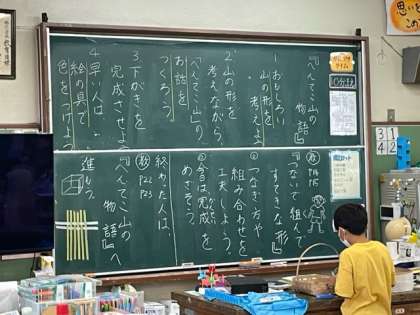 『へんてこ山の
物語』
1.おもしろい
山の形を
考えよう
2.山の形を
考えながら、
「へんてこ山」の
お話を
つくろう
3.下がきを
完成させよう
4.早い人は…
絵の具で
色をつけよう
『つないで組んで
すてきな形』
①つなぎ方や
組み合わせを
工夫しよう。
②今日は完成を
めざそう。
終わった人は、
教 P22
P23
『へんてこ山の
物語』へ
進もう。
思いを
31
42